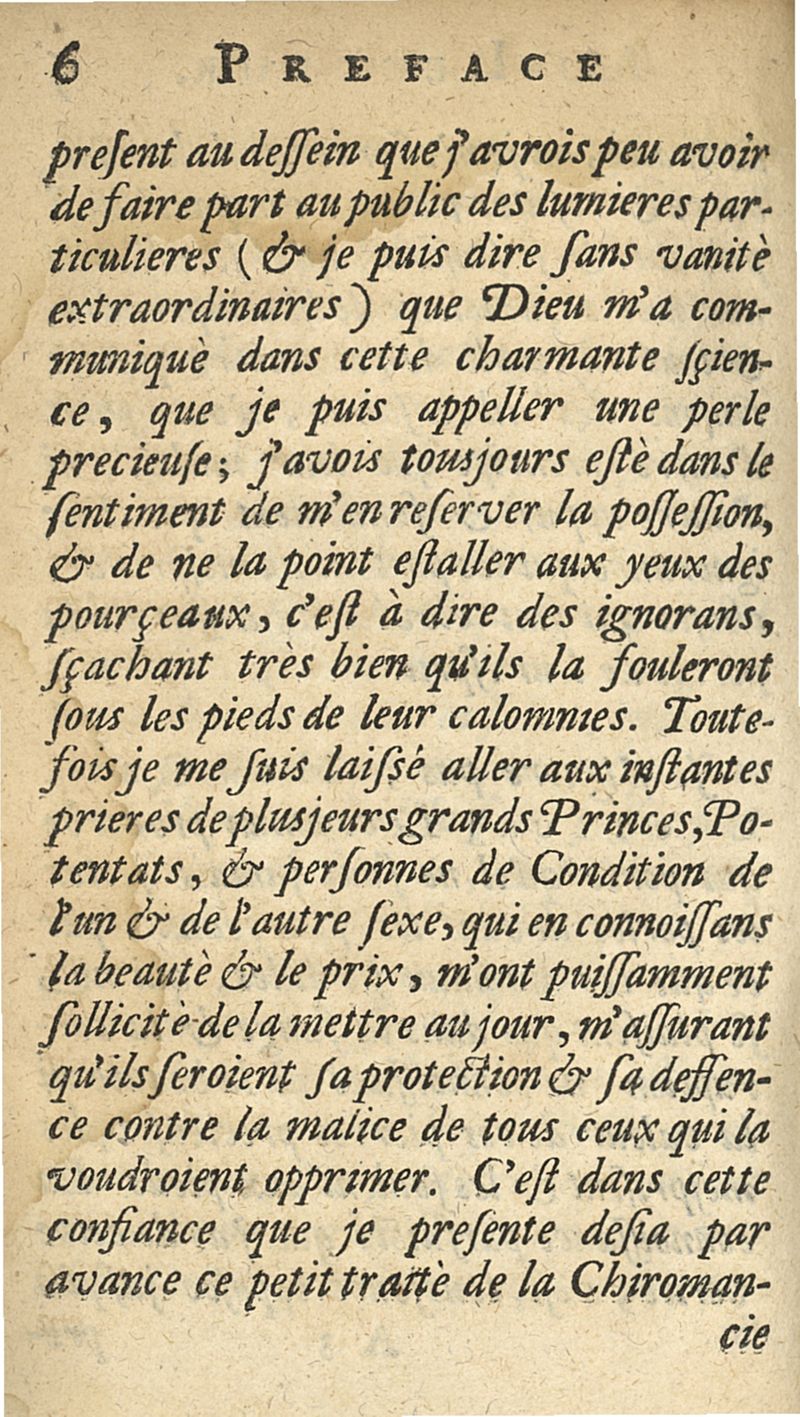 6 PREFACE
preſent au deſſein que j'avrois peu avoir
de faire part au public des lumieres par-
ticulieres (& je puis dire ſans vanitè
extraordinaires) que Dieu m'a com-
muniquè dans cette charmante ſçien-
ce, que je puis appeller une perle
precieuſe; j'avois tousjours eſtè dans le
ſentiment de m'en reſerver la poſſeſſion,
& de ne la point eſtaller aux yeux des
pourçeaux, c'eſt à dire des ignorans,
ſçachant très bien qu'ils la fouleront
ſous les pieds de leur calomnies. Toute-
fois je me ſuis laiſsé aller aux inſtantes
prieres de plusjeurs grands Princes, Po-
tentats, & perſonnes de Condition de
l'un & de l'autre ſexe, qui en connoiſſans
la beautè & le prix, m'ont puiſſamment
ſollicitè de la mettre au jour, m'aſſurant
qu'ils ſeroient ſa protection & ſa deffen-
ce contre la malice de tous ceux qui la
voudroient opprimer. C'eſt dans cette
confiance que je preſente deſia par
avance ce petit traittè de la Chiroman-
cie